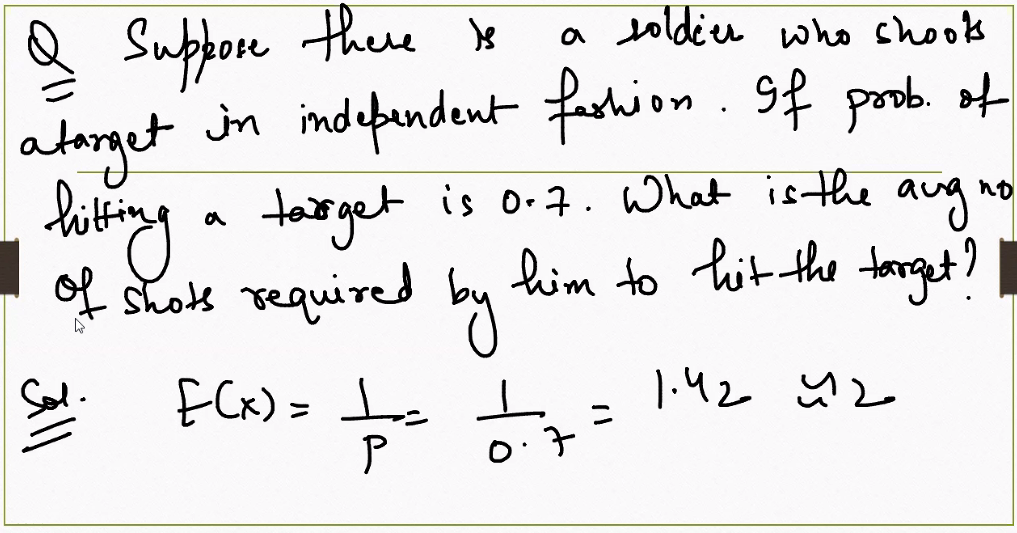 Q Suppose there is a soldier who shoots
a target in independent fashion. If prob. of
hitting a target is 0.7. What is the avg no
of shots required by him to hit the target?
Sol. E(x) = 1/p = 1/0.7 = 1.42 ≈ 2